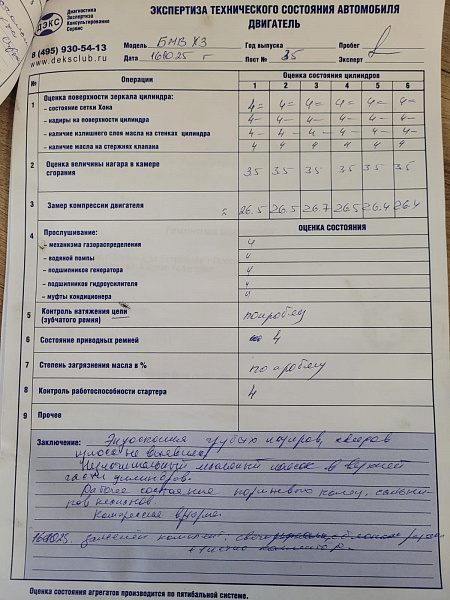 ДЭКС
Диагностика
Экспертиза
Консультирование
Сервис
8 (495) 930-54-13
www.deksclub.ru
ЭКСПЕРТИЗА ТЕХНИЧЕСКОГО СОСТОЯНИЯ АВТОМОБИЛЯ
ДВИГАТЕЛЬ
Модель БМВ Х3 Год выпуска Пробег
Дата 161025 г Пост № 35 Эксперт
№ Операции Оценка состояния цилиндров
1 2 3 4 5 6
1 Оценка поверхности зеркала цилиндра:
– состояние сетки Хона 4= 4= 4= 4= 4= 4=
– надиры на поверхности цилиндра 4- 4- 4- 4- 4- 4-
– наличие излишнего слоя масла на стенках цилиндра 4- 4- 4 4- 4- 4-
– наличие масла на стержнях клапана 4 4 4 4 4 4
2 Оценка величины нагара в камере
сгорания 35 35 35 35 35 35
3 Замер компрессии двигателя 26.5 26.5 26.7 26.5 26.4 26.4
4 Прослушивание: ОЦЕНКА СОСТОЯНИЯ
– механизма газораспределения 4
– водяной помпы 4
– подшипников генератора 4
– подшипников гидроусилителя 4
– муфты кондиционера 4
5 Контроль натяжения цепи
(зубчатого ремня) по пробегу
6 Состояние приводных ремней 4
7 Степень загрязнения масла в % по пробегу
8 Контроль работоспособности стартера 4
9 Прочее
Заключение: Эндоскопия грубых задиров,
не выявила
масляный в верхней
части цилиндров.
Рабочее состояние поршневых колец,
Компрессия в норме
161025.
Оценка состояния агрегатов производится по пятибальной системе.